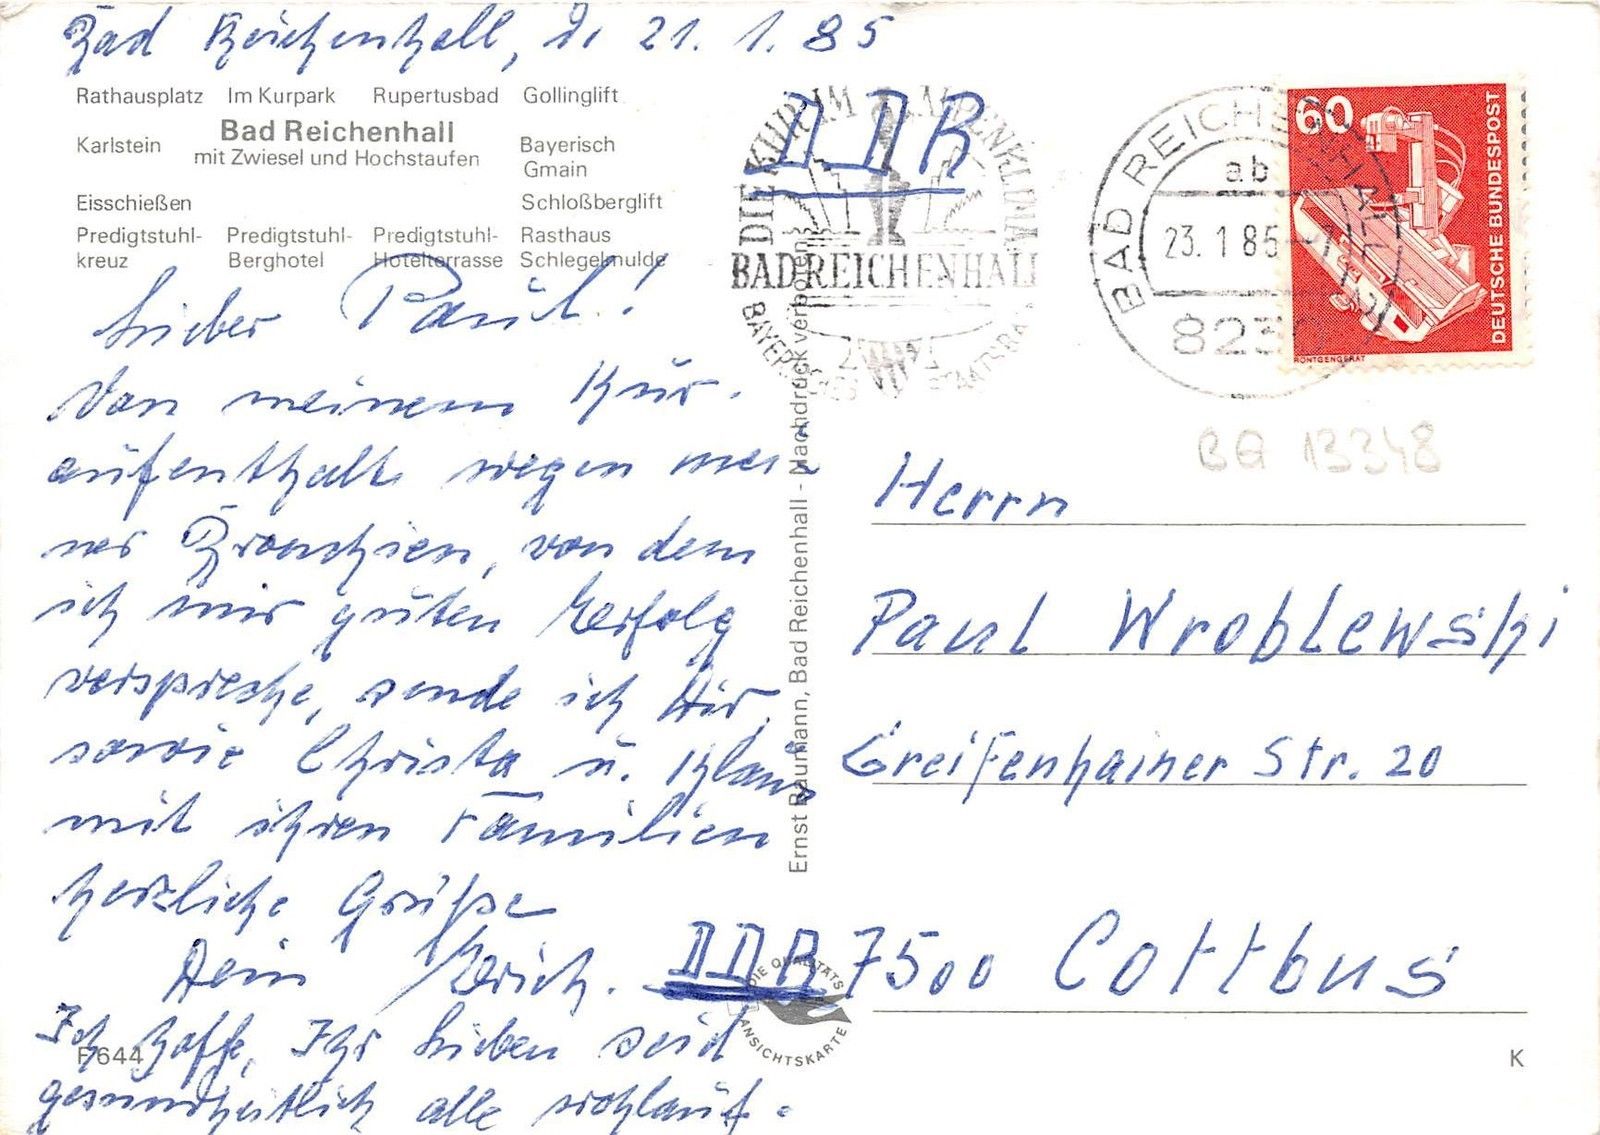 Bad Reichenhall, d. 21. 1. 85
Rathausplatz Im Kurpark Rupertusbad Gollinglift
Karlstein Bad Reichenhall Bayerisch
mit Zwiesel und Hochstaufen Gmain
Eisschießen Schloßberglift
Predigtstuhl- Predigtstuhl- Predigtstuhl- Rasthaus
kreuz Berghotel Hotelterrasse Schlegelmulde
Lieber Paul!
Von meinem Kur-
aufenthalt wegen mei-
ner Bronchien, von dem
ich mir guten Erfolg
verspreche, sende ich Dir,
sowie Christa u. Klaus
mit ihren Familien
herzliche Grüße
Dein Erich.
Ich hoffe, Ihr Lieben seid
gesundheitlich alle wohlauf.
F 644
Ernst Baumann, Bad Reichenhall - Nachdruck verboten
DDR
DIE KUR IM ALPENKLIMA
BAD REICHENHALL
BAYER. STAATSBAD
BAD REICHENHALL
ab
23.1.85
823
60
DEUTSCHE BUNDESPOST
RÖNTGENGERÄT
BG 13348
Herrn
Paul Wroblewski
Greifenhainer Str. 20
DDR 7500 Cottbus
DIE QUALITÄTS
ANSICHTSKARTE
K